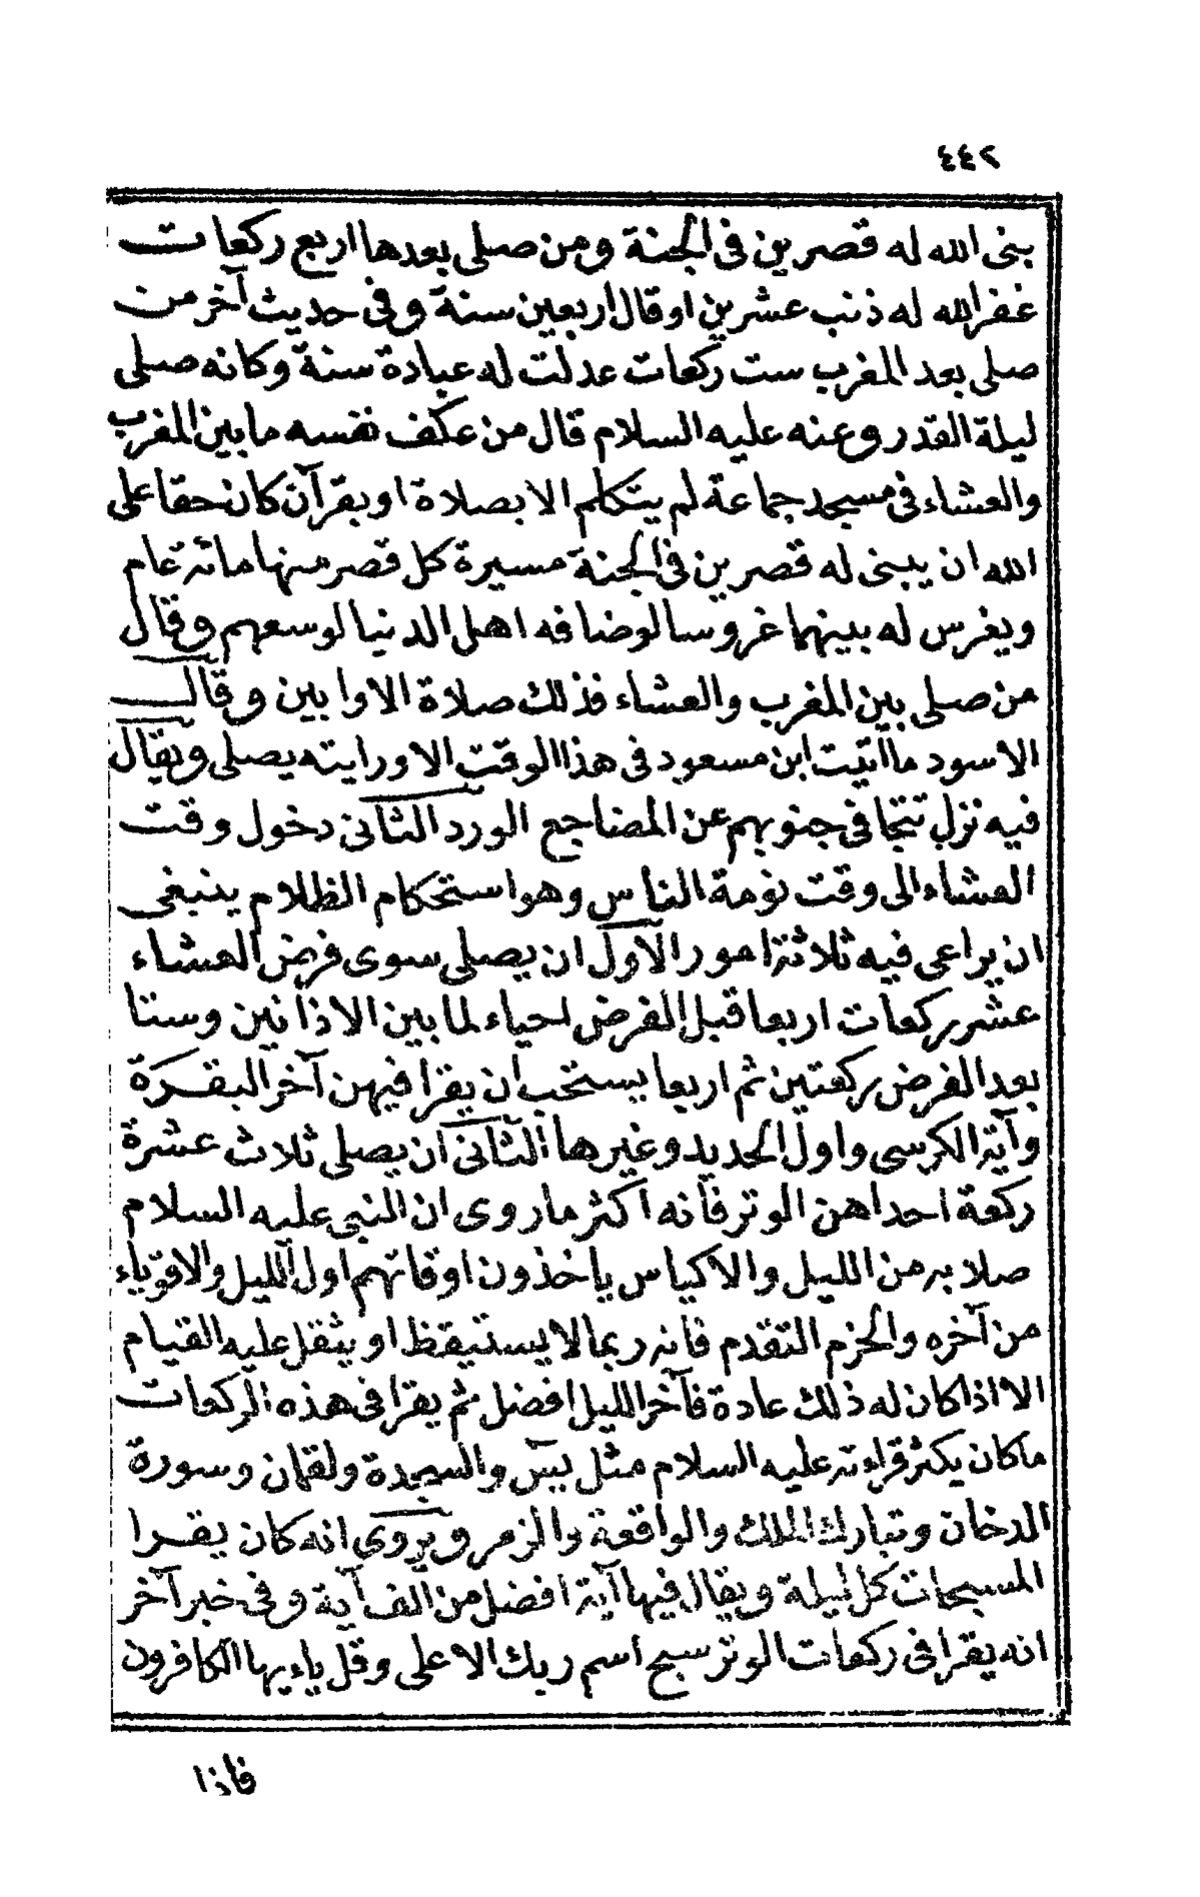 ٤٤٢
بنى الله له قصرين فى الجنة ومن صلى بعدها اربع ركعات
غفر الله له ذنب عشرين او قال اربعين سنة وفى حديث آخر من
صلى بعد المغرب ست ركعات عدلت له عبادة سنة وكانه صلى
ليلة القدر وعنه عليه السلام قال من عكف نفسه ما بين المغرب
والعشاء فى مسجد جماعة لم يتكلم الا بصلاة او بقرآن كان حقا على
الله ان يبنى له قصرين فى الجنة مسيرة كل قصر منها مائة عام
ويغرس له بينهما غروسا لو ضافه اهل الدنيا لوسعهم وقال
من صلى بين المغرب والعشاء فذلك صلاة الاوابين وقال
الاسود ما اتيت ابن مسعود فى هذا الوقت الا ورايته يصلى ويقال
فيه نزل تتجافى جنوبهم عن المضاجع الورد الثانى دخول وقت
العشاء الى وقت نومة الناس وهو استحكام الظلام ينبغى
ان يراعى فيه ثلاثة امور الاول ان يصلى سوى فرض العشاء
عشر ركعات اربعا قبل الفرض احياء لما بين الاذانين وستا
بعد الفرض ركعتين ثم اربعا يستحب ان يقرا فيهن آخر البقرة
وآية الكرسى واول الحديد وغيرها الثانى ان يصلى ثلاث عشرة
ركعة احداهن الوتر فانه اكثر ما روى ان النبى عليه السلام
صلا به من الليل والاكياس ياخذون اوقاتهم اول الليل والاقوياء
من آخره والحزم التقدم فانه ربما لا يستيقظ او يثقل عليه القيام
الا اذا كان له ذلك عادة فآخر الليل افضل ثم يقرا فى هذه الركعات
ما كان يكثر قراءته عليه السلام مثل يس والسجدة ولقمان وسورة
الدخان وتبارك الملك والواقعة والزمر ويروى انه كان يقرا
المسبحات كل ليلة ويقال فيها آية افضل من الف آية وفى خبر آخر
انه يقرا فى ركعات الوتر سبح اسم ربك الاعلى وقل ياءيها الكافرون
فاذا